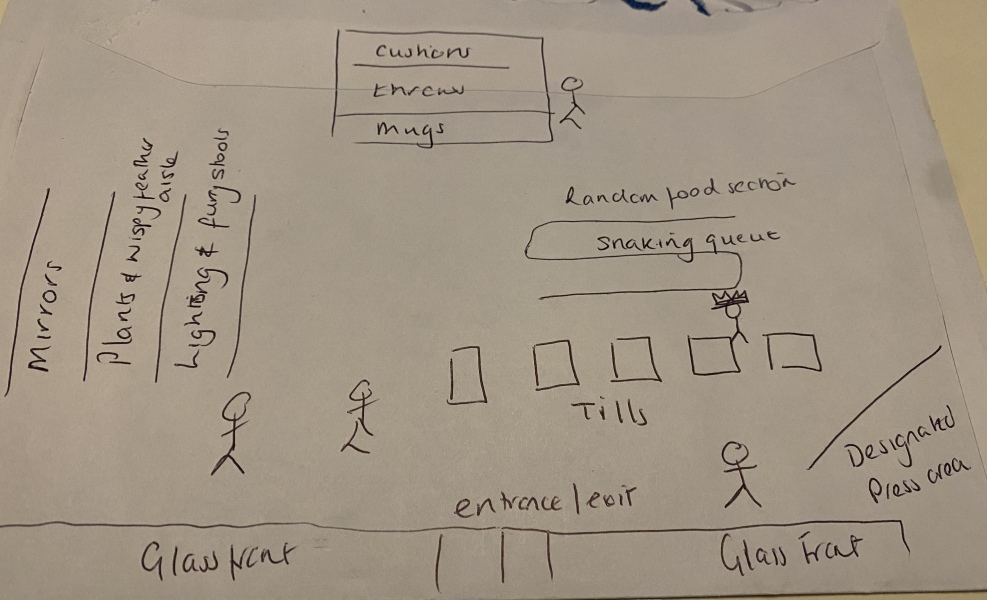 cushions
throws
mugs
Random food section
snaking queue
Mirrors
Plants & wispy feather
aisle
Lighting & furry stools
Tills
Designated
Press area
entrance/exit
Glass front
Glass front